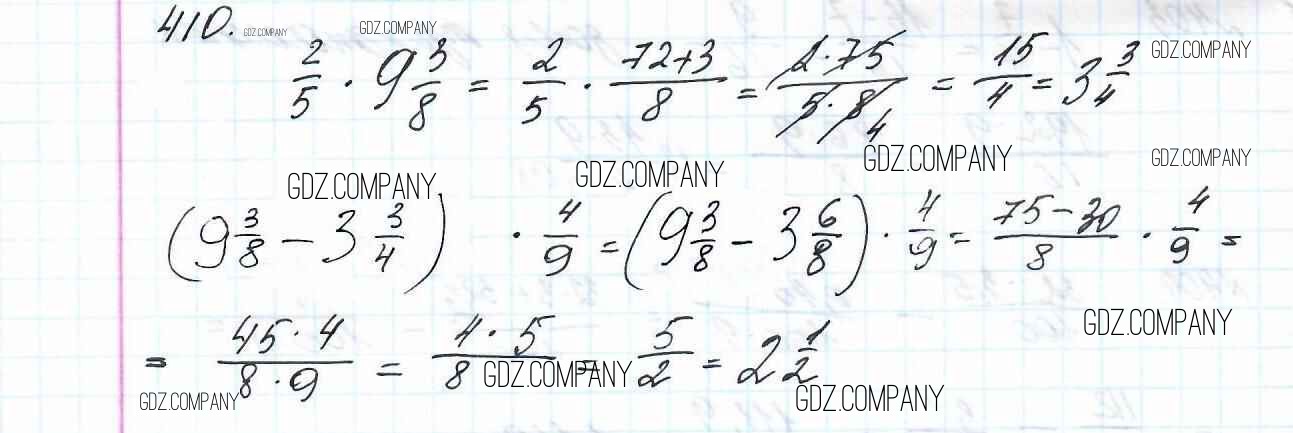 410. GDZ.COMPANY GDZ.COMPANY
2/5 · 9 3/8 = 2/5 · 72+3/8 = 2·75/5·8 4 = 15/4 = 3 3/4 GDZ.COMPANY
GDZ.COMPANY GDZ.COMPANY GDZ.COMPANY GDZ.COMPANY
(9 3/8 − 3 3/4) · 4/9 = (9 3/8 − 3 6/8) · 4/9 = 75−30/8 · 4/9 =
GDZ.COMPANY
= 45·4/8·9 = 4·5/8 = 5/2 = 2 1/2
GDZ.COMPANY GDZ.COMPANY GDZ.COMPANY